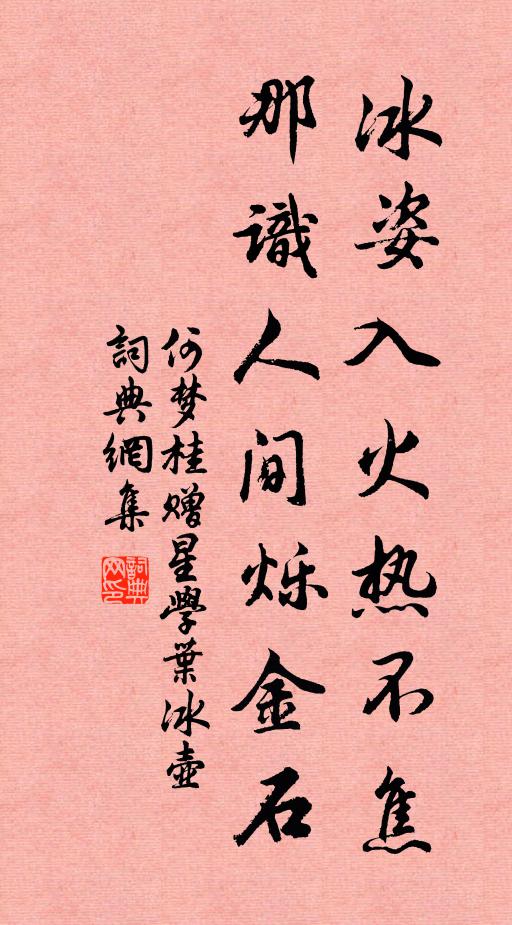 冰姿入火热不焦
那識人间烁金石
何梦桂赠星學葉冰壺
詞典網集
詞典網印